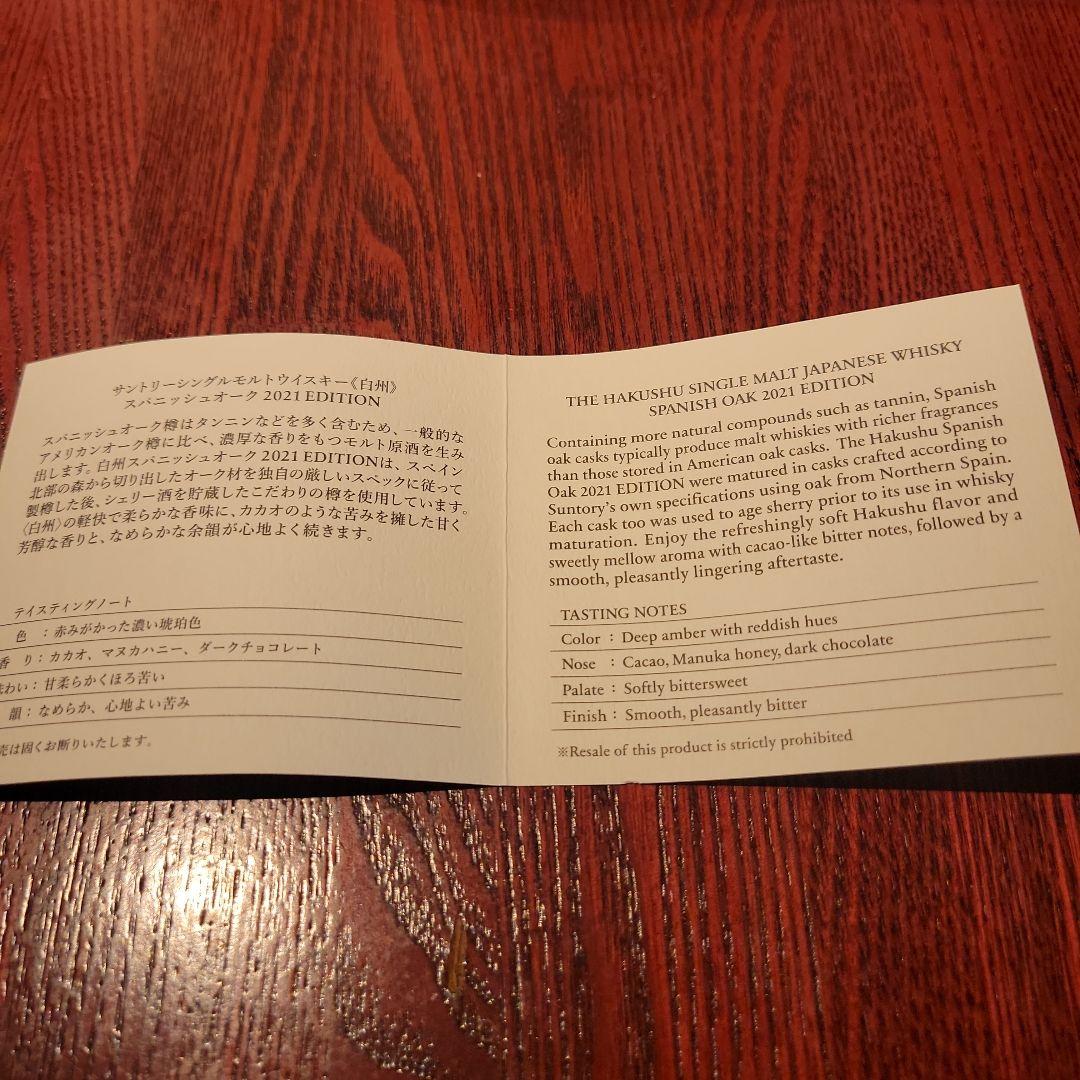 サントリーシングルモルトウイスキー《白州》
スパニッシュオーク 2021 EDITION
スパニッシュオーク樽はタンニンなどを多く含むため、一般的な
アメリカンオーク樽に比べ、濃厚な香りをもつモルト原酒を生み
出します。白州スパニッシュオーク 2021 EDITIONは、スペイン
北部の森から切り出したオーク材を独自の厳しいスペックに従って
製樽した後、シェリー酒を貯蔵したこだわりの樽を使用しています。
〈白州〉の軽快で柔らかな香味に、カカオのような苦みを擁した甘く
芳醇な香りと、なめらかな余韻が心地よく続きます。
テイスティングノート
色 : 赤みがかった濃い琥珀色
香 り : カカオ、マヌカハニー、ダークチョコレート
わい : 甘柔らかくほろ苦い
韻 : なめらか、心地よい苦み
売は固くお断りいたします。
THE HAKUSHU SINGLE MALT JAPANESE WHISKY
SPANISH OAK 2021 EDITION
Containing more natural compounds such as tannin, Spanish
oak casks typically produce malt whiskies with richer fragrances
than those stored in American oak casks. The Hakushu Spanish
Oak 2021 EDITION were matured in casks crafted according to
Suntory's own specifications using oak from Northern Spain.
Each cask too was used to age sherry prior to its use in whisky
maturation. Enjoy the refreshingly soft Hakushu flavor and
sweetly mellow aroma with cacao-like bitter notes, followed by a
smooth, pleasantly lingering aftertaste.
TASTING NOTES
Color : Deep amber with reddish hues
Nose : Cacao, Manuka honey, dark chocolate
Palate : Softly bittersweet
Finish : Smooth, pleasantly bitter
※Resale of this product is strictly prohibited